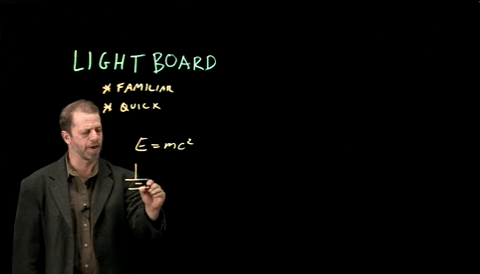 LIGHT BOARD
* FAMILIAR
* QUICK
E = mc²